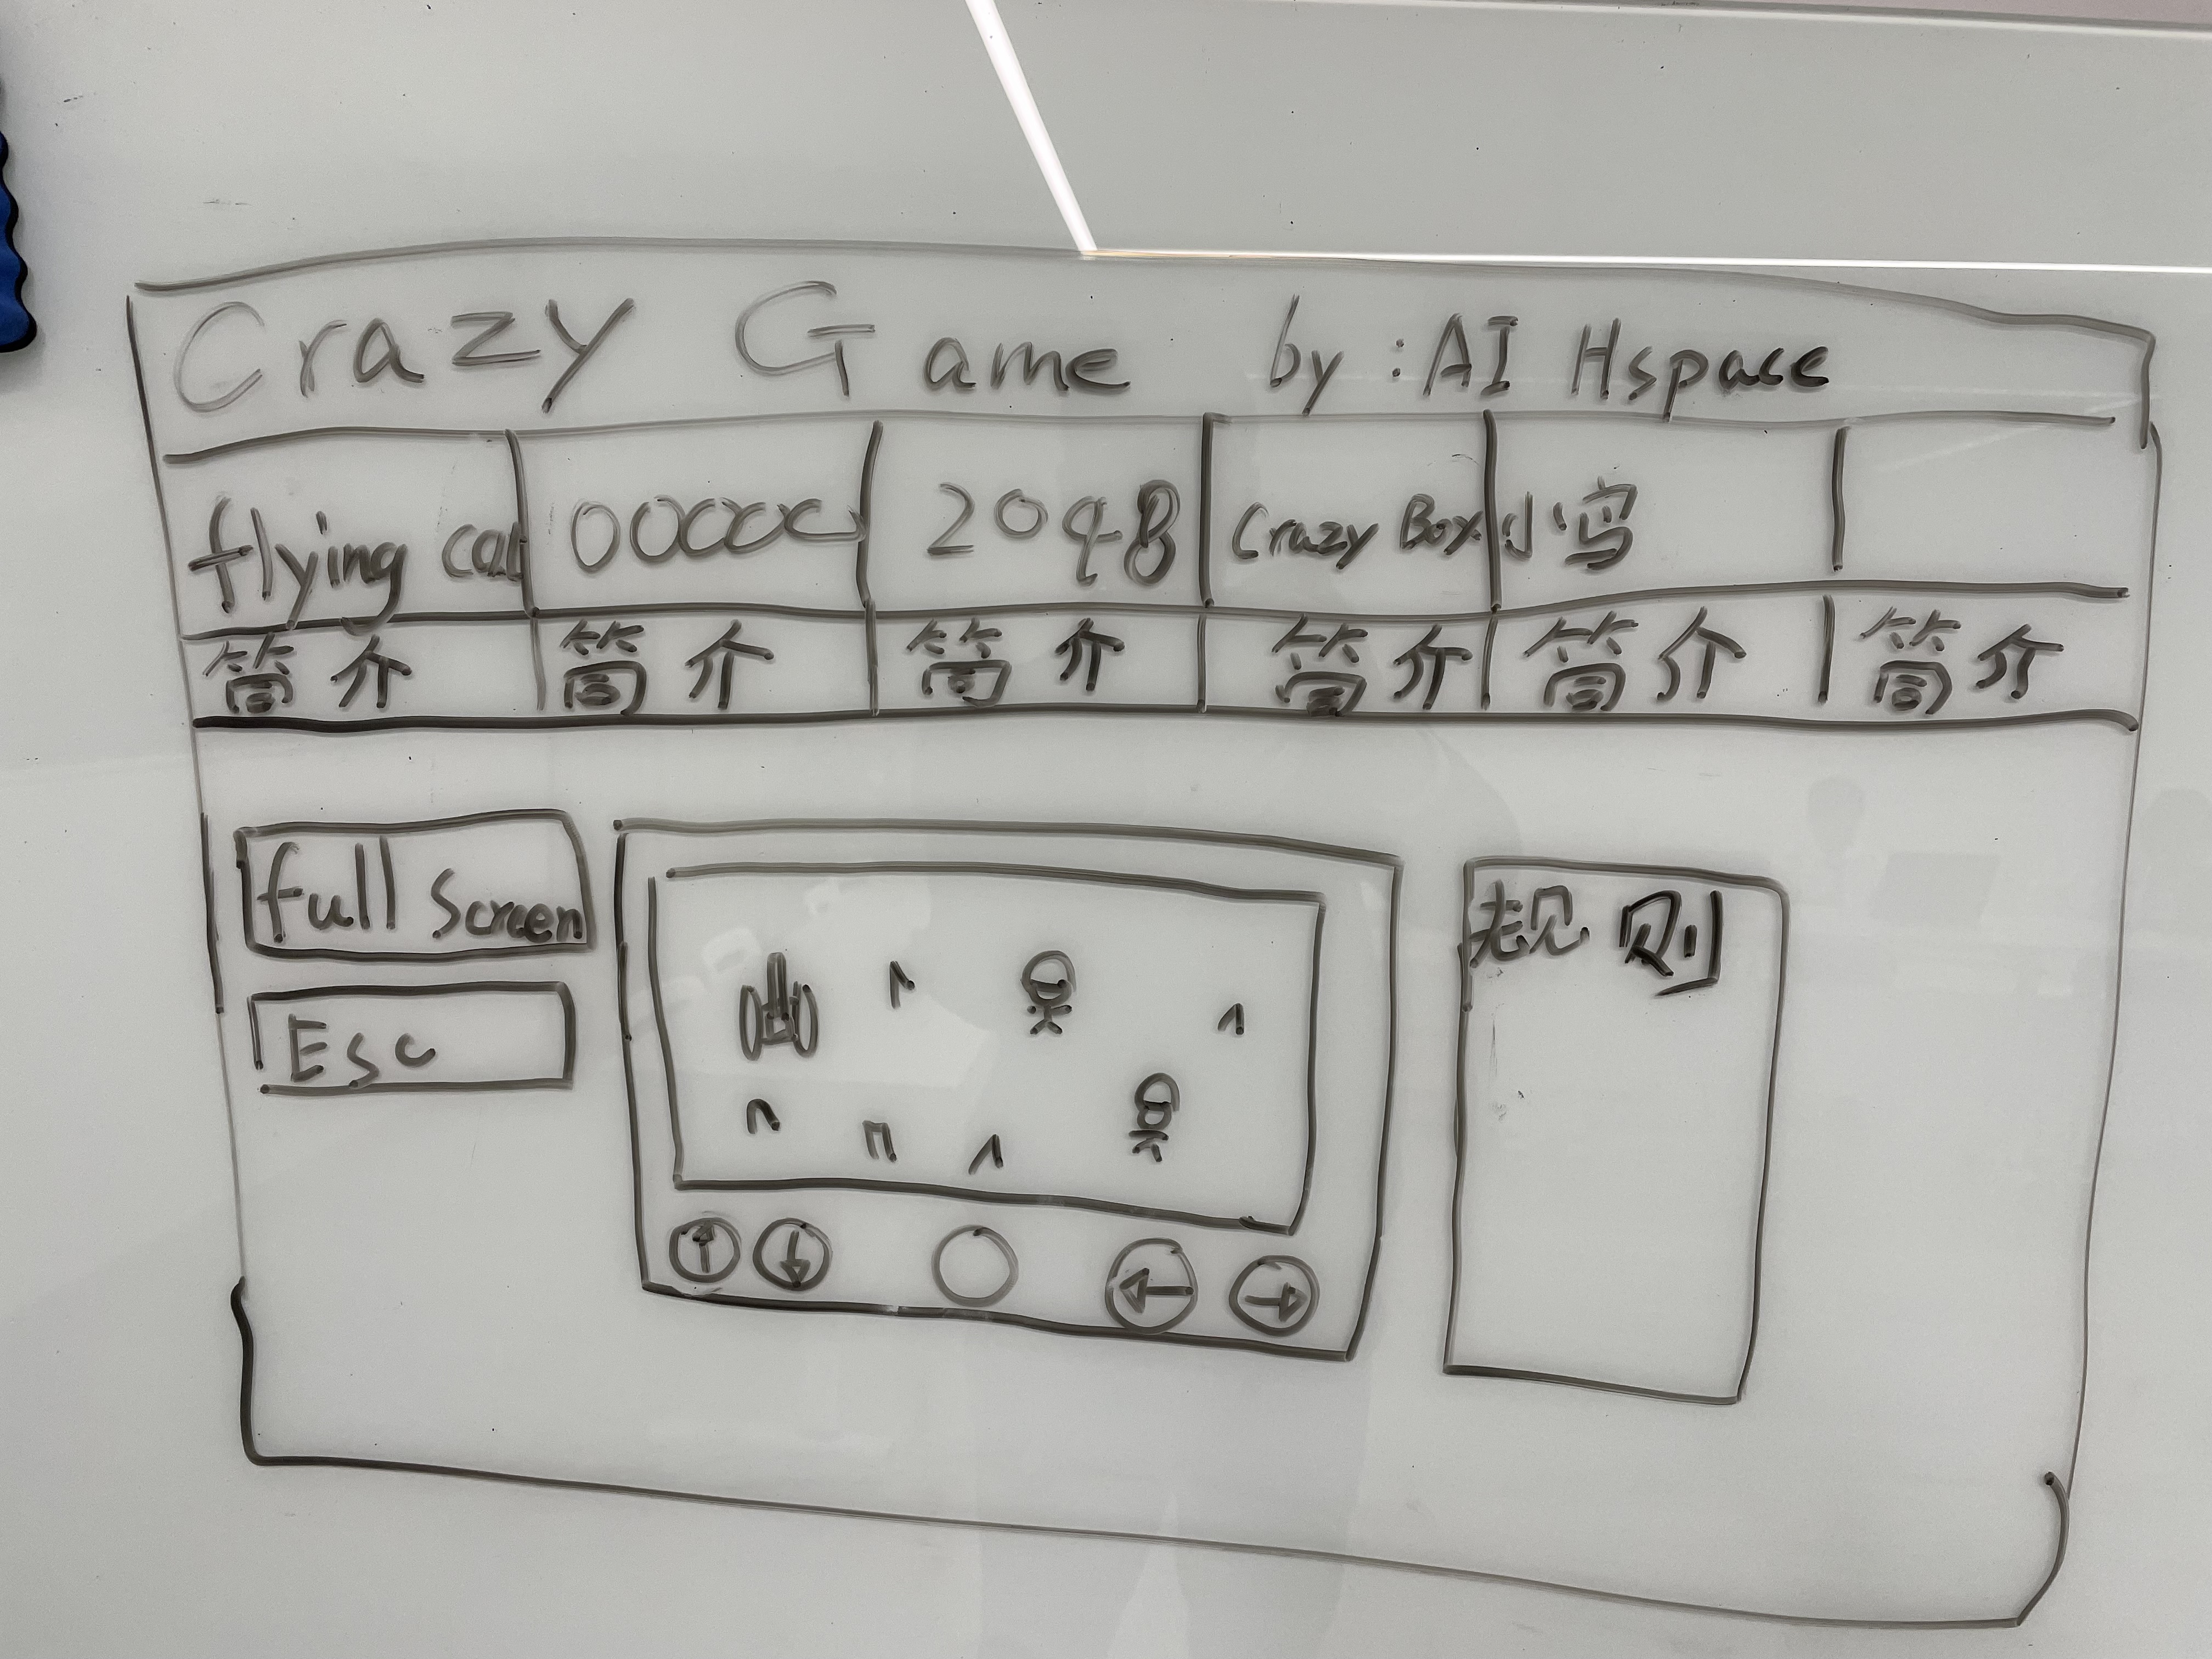 Crazy Game by:AI Hspace
flying cat 2048 Crazy Box 小鸟
简介 简介 简介 简介 简介 简介
full screen
规则
Esc